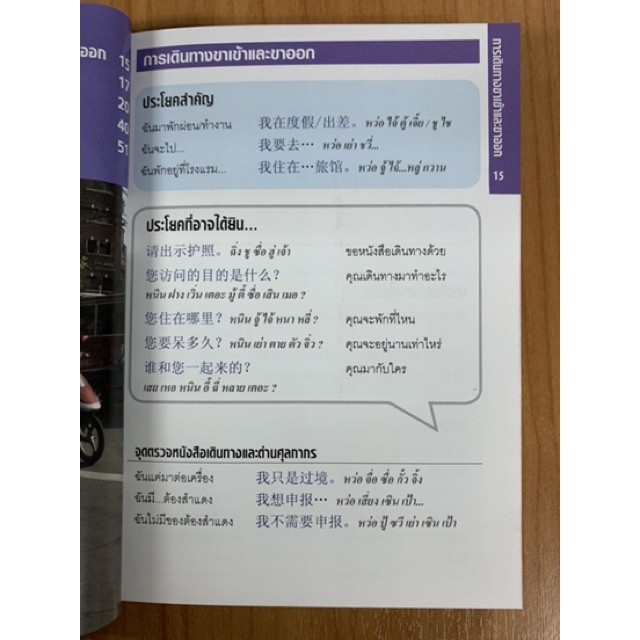 าออก 15
17
20
40
51
การเดินทางขาเข้าและขาออก
การเดินทางขาเข้าและขาออก
15
ประโยคสำคัญ
ฉันมาพักผ่อน/ทำงาน 我在度假/出差。 หว่อ ไจ้ ตู้ เจี้ย / ชู ไช
ฉันจะไป... 我要去… หว่อ เย่า ชวี่...
ฉันพักอยู่ที่โรงแรม... 我住在…旅馆。 หว่อ จู้ ไจ้...หลู่ กวาน
ประโยคที่อาจได้ยิน...
请出示护照。 ฉิ่ง ชู ซื่อ ฮู่ เจ้า ขอหนังสือเดินทางด้วย
您访问的目的是什么? คุณเดินทางมาทำอะไร
หนิน ฝาง เวิ่น เตอะ มู้ ตี้ ซื่อ เสิน เมอ ?
您住在哪里? หนิน จู้ ไจ้ หนา หลี่ ? คุณจะพักที่ไหน
您要呆多久? หนิน เย่า ตาย ตัว จิ่ว ? คุณจะอยู่นานเท่าไหร่
谁和您一起来的? คุณมากับใคร
เสย เหอ หนิน อี้ ฉี่ หลาย เตอะ ?
จุดตรวจหนังสือเดินทางและด่านศุลกากร
ฉันแค่มาต่อเครื่อง 我只是过境。 หว่อ จื่อ ซื่อ กั้ว จิ้ง
ฉันมี...ต้องสำแดง 我想申报… หว่อ เสี่ยง เซิน เป้า...
ฉันไม่มีของต้องสำแดง 我不需要申报。 หว่อ ปู้ ซวี เย่า เซิน เป้า